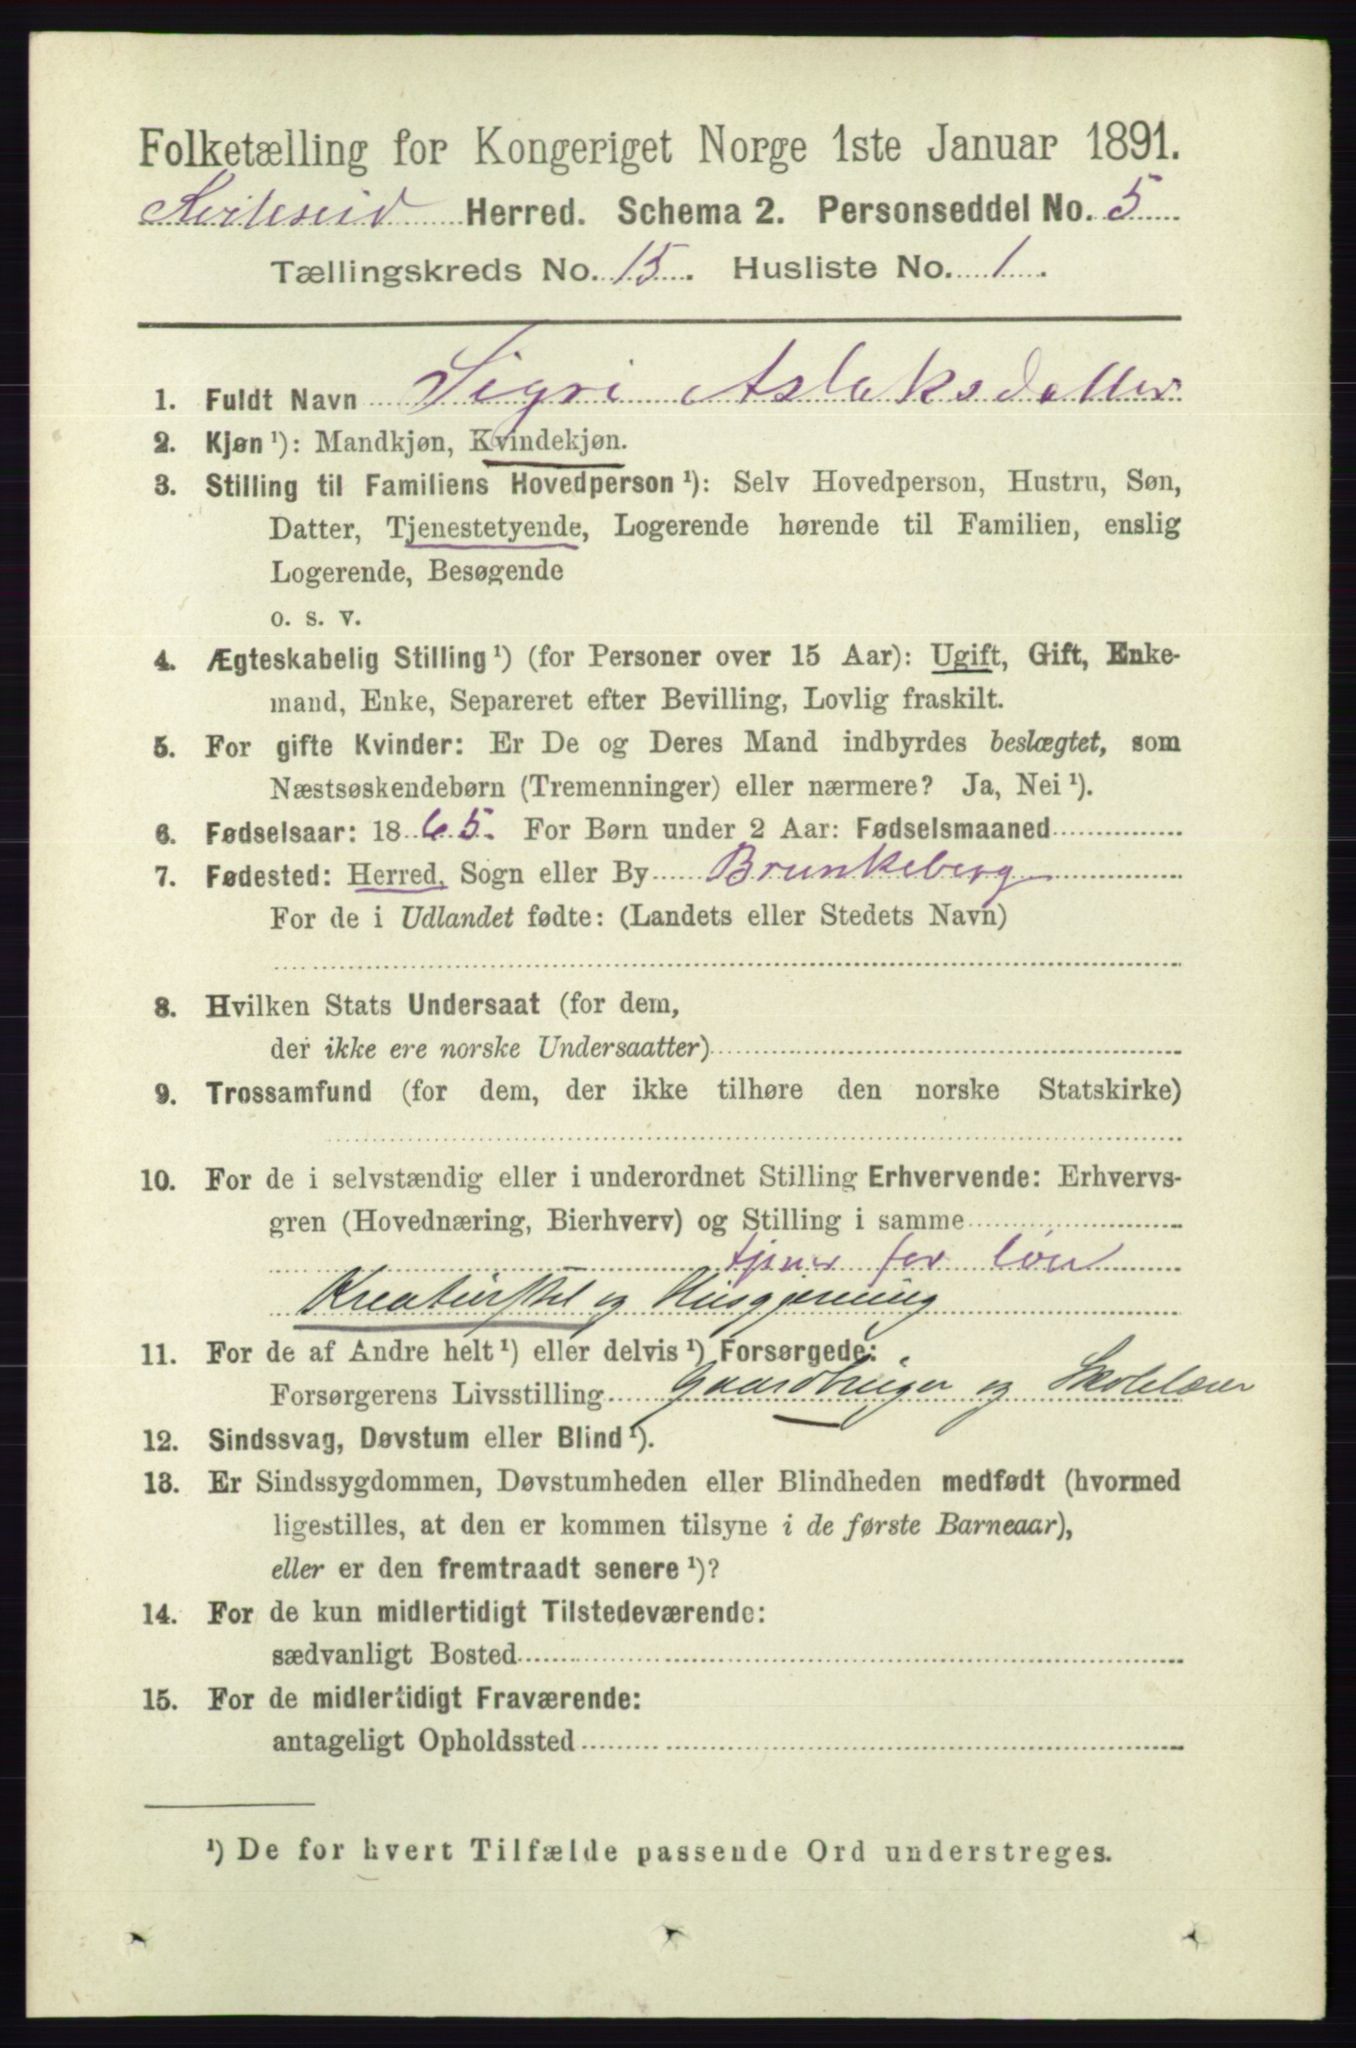 Folketælling for Kongeriget Norge 1ste Januar 1891.
Kviteseid Herred. Schema 2. Personseddel No. 5
Tællingskreds No. 15. Husliste No. 1.
1. Fuldt Navn Sigri Aslaksdatter
2. Kjøn ¹): Mandkjøn, Kvindekjøn.
3. Stilling til Familiens Hovedperson ¹): Selv Hovedperson, Hustru, Søn,
Datter, Tjenestetyende, Logerende hørende til Familien, enslig
Logerende, Besøgende
o. s. v.
4. Ægteskabelig Stilling ¹) (for Personer over 15 Aar): Ugift, Gift, Enke-
mand, Enke, Separeret efter Bevilling, Lovlig fraskilt.
5. For gifte Kvinder: Er De og Deres Mand indbyrdes beslægtet, som
Næstsøskendebørn (Tremenninger) eller nærmere? Ja, Nei ¹).
6. Fødselsaar: 1865. For Børn under 2 Aar: Fødselsmaaned
7. Fødested: Herred, Sogn eller By Brunkeberg
For de i Udlandet fødte: (Landets eller Stedets Navn)
8. Hvilken Stats Undersaat (for dem,
der ikke ere norske Undersaatter)
9. Trossamfund (for dem, der ikke tilhøre den norske Statskirke)
10. For de i selvstændig eller i underordnet Stilling Erhvervende: Erhvervs-
gren (Hovednæring, Bierhverv) og Stilling i samme
tjener for løn
Kreaturstel og Husgjerning
11. For de af Andre helt ¹) eller delvis ¹) Forsørgede:
Forsørgerens Livsstilling Gaardbruger og Skolelærer
12. Sindssvag, Døvstum eller Blind ¹).
13. Er Sindssygdommen, Døvstumheden eller Blindheden medfødt (hvormed
ligestilles, at den er kommen tilsyne i de første Barneaar),
eller er den fremtraadt senere ¹)?
14. For de kun midlertidigt Tilstedeværende:
sædvanligt Bosted
15. For de midlertidigt Fraværende:
antageligt Opholdssted
¹) De for hvert Tilfælde passende Ord understreges.